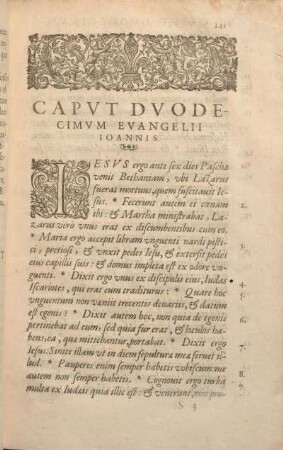 141
CAPVT DVODE-
CIMVM EVANGELII
IOANNIS.
IESVS ergo ante sex dies Paschæ
venit Bethaniam, vbi Lazarus
fuerat mortuus, quem suscitauit Ie-
sus. * Fecerunt autem ei cœnam
ibi: & Martha ministrabat, La-
zarus verò vnus erat ex discumbentibus cum eo.
* Maria ergo accepit libram vnguenti nardi pisti-
ci, pretiosi, & vnxit pedes Iesu, & extersit pedes
eius capillis suis: & domus impleta est ex odore vn-
guenti. * Dixit ergo vnus ex discipulis eius, Iudas
Iscariotes, qui erat eum traditurus: * Quare hoc
vnguentum non vaniit trecentis denariis, & datum
est egenis? * Dixit autem hoc, non quia de egenis
pertinebat ad eum: sed quia fur erat, & loculos ha-
bens, ea, quæ mittebantur, portabat. * Dixit ergo
Iesus: Sinite illam vt in diem sepulturæ meæ seruet il-
lud. * Pauperes enim semper habetis vobiscum: me
autem non semper habetis. * Cognouit ergo turba
multa ex Iudæis quia illic est: & venerunt, non pro-
S 3
4.
5.
6.
7.
8.
9.